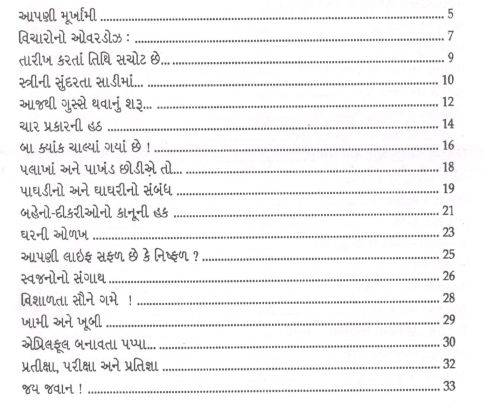 આપણી મૂર્ખામી ........ 5
વિચારોનો ઓવરડોઝ : ........ 7
તારીખ કરતાં તિથિ સચોટ છે... ........ 9
સ્ત્રીની સુંદરતા સાડીમાં... ........ 10
આજથી ગુસ્સે થવાનું શરૂ... ........ 12
ચાર પ્રકારની હઠ ........ 14
બા ક્યાંક ચાલ્યાં ગયાં છે ! ........ 16
પલાખાં અને પાખંડ છોડીએ તો... ........ 18
પાઘડીનો અને ઘાઘરીનો સંબંધ ........ 19
બહેનો-દીકરીઓનો કાનૂની હક ........ 21
ઘરની ઓળખ ........ 23
આપણી લાઇફ સફળ છે કે નિષ્ફળ ? ........ 25
સ્વજનોનો સંગાથ ........ 26
વિશાળતા સૌને ગમે ! ........ 28
ખામી અને ખૂબી ........ 29
એપ્રિલફૂલ બનાવતા પપ્પા... ........ 30
પ્રતીક્ષા, પરીક્ષા અને પ્રતિજ્ઞા ........ 32
જય જવાન ! ........ 33